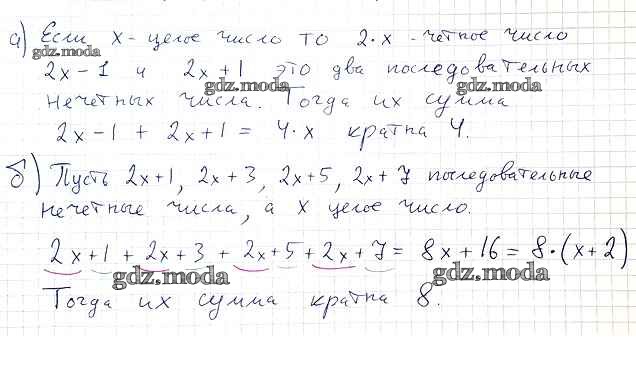 а) Если x - целое число то 2·x - четное число
gdz.moda
2x - 1 и 2x + 1 это два последовательных
gdz.moda gdz.moda
нечетных числа. Тогда их сумма
2x - 1 + 2x + 1 = 4·x кратна 4.
б) Пусть 2x+1, 2x+3, 2x+5, 2x+7 последовательные
нечетные числа, а x целое число.
2x + 1 + 2x + 3 + 2x + 5 + 2x + 7 = 8x + 16 = 8·(x+2)
gdz.moda gdz.moda
Тогда их сумма кратна 8.